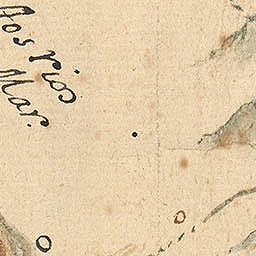 los rios
Mar.